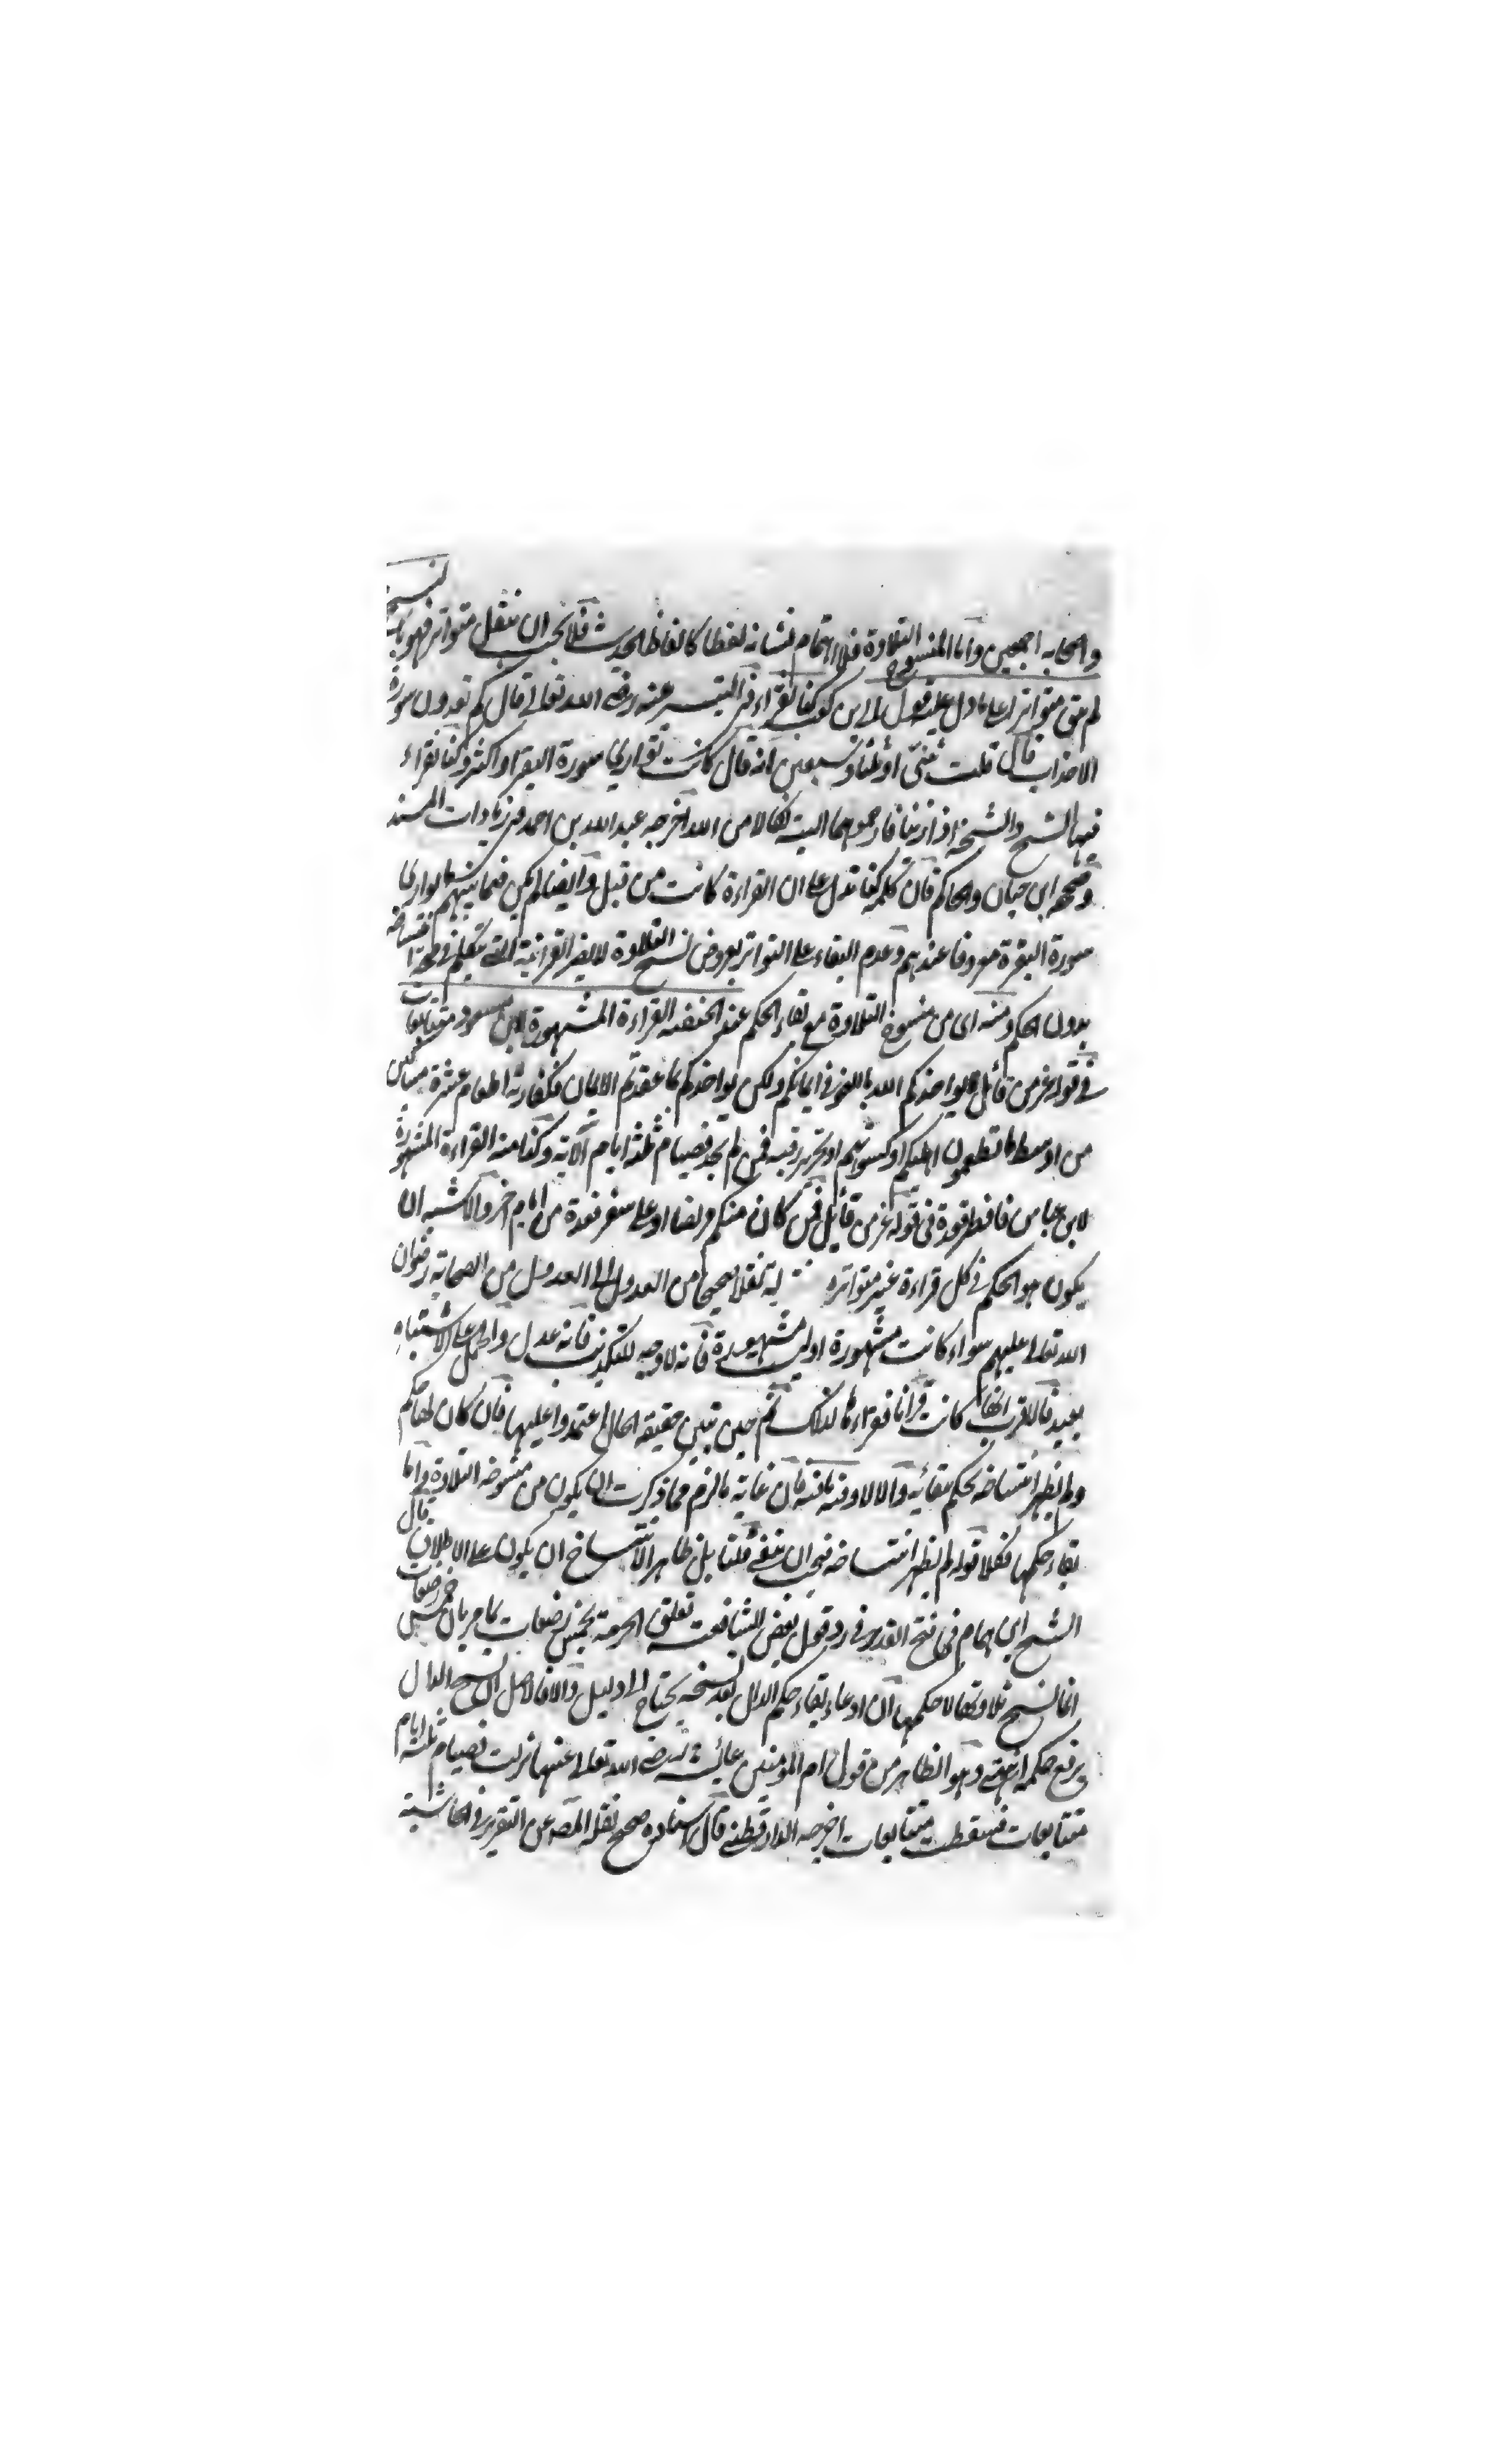 واصحابه اجمعين واما المنسوخ التلاوة فلا اهتمام بشانه لفظا كالفاظ الحديث فلا يجب ان ينقل متواتر فهو بالنسخ
لم يبق متواترا على ما دل عليه قول ابي بن كعب كنا نقراء رضي الله تعالى قال كم تعدون سورة
الاحزاب قال قلت ثنتي او ثلثا وسبعين انه قال كانت توازي سورة البقر او اكثر وكنا نقراء
فيها الشيخ والشيخة اذا زنيا فارجموهما البتة نكالا من الله اخرجه عبد الله بن احمد في زيادات المسند
وصححه ابن حبان والحاكم فان كلمة كنا تدل على ان القراءة كانت من قبل وايضا لم يكن فيما بينهم ما يوازي
سورة البقرة معروفا عندهم وعدم البقاء على التواتر بعروض نسخ التلاوة لا يضر القرانية التي
بدون الحكم ومنه اى من منسوخ التلاوة مع بقاء الحكم عند الحنفية القراءة المشهورة لابن مسعود متتابعات
في قوله عز من قائل لا يواخذكم الله باللغو في ايمانكم ولكن يواخذكم بما عقدتم الايمان فكفارته اطعام عشرة مساكين
من اوسط ما تطعمون اهليكم او كسوتهم او تحرير رقبة فمن لم يجد فصيام ثلثة ايام الاية وكذا منه القراءة المشهورة
لابن عباس فافطر فعدة في قوله عز من قائل فمن كان منكم مريضا او على سفر فعدة من ايام اخر والاشبه ان
يكون هو الحكم في كل قراءة غير متواترة نقلا صحيحا من العدول الى العدول من الصحابة رضوان
الله تعالى عليهم سواء كانت مشهورة او ليست مشهورة فانه لا وجه للتكذيب فانه عدل والحمل على الاشتباه
بعيد فالاقرب انها كانت قرانا فقراءها لذلك ثم حين تبين حقيقة الحال اعتمدوا عليها فان كان لها حكم
ولم يظهر انتساخه يحكم ببقائه والا لا وفيه مافيه فان غاية ما لزم مما ذكرت ان يكون من منسوخة التلاوة واما
بقاء حكمها فكلا قوله لم يظهر انتساخه فيجب ان يبقى قلنا بل ظاهر الانتساخ ان يكون على الاطلاق قال
الشيخ ابن همام في فتح القدير في رد قول بعض الشافعية تعلق الحرمة بخمس رضعات بما مر بان خمس رضعات
انما نسخ تلاوتها لا حكمها ان ادعاء بقاء حكم الدال بعد نسخه يحتاج الى دليل والا فالاصل ان نسخ الدال
يرفع حكمه انتهى وهو الظاهر من قول ام المومنين عائشة رضى الله تعالى عنها نزلت فصيام ثلثة ايام
متتابعات فسقطت متتابعات اخرجه الدارقطني قال اسناده صحيح نقله المصـ عن التقرير في الحاشية